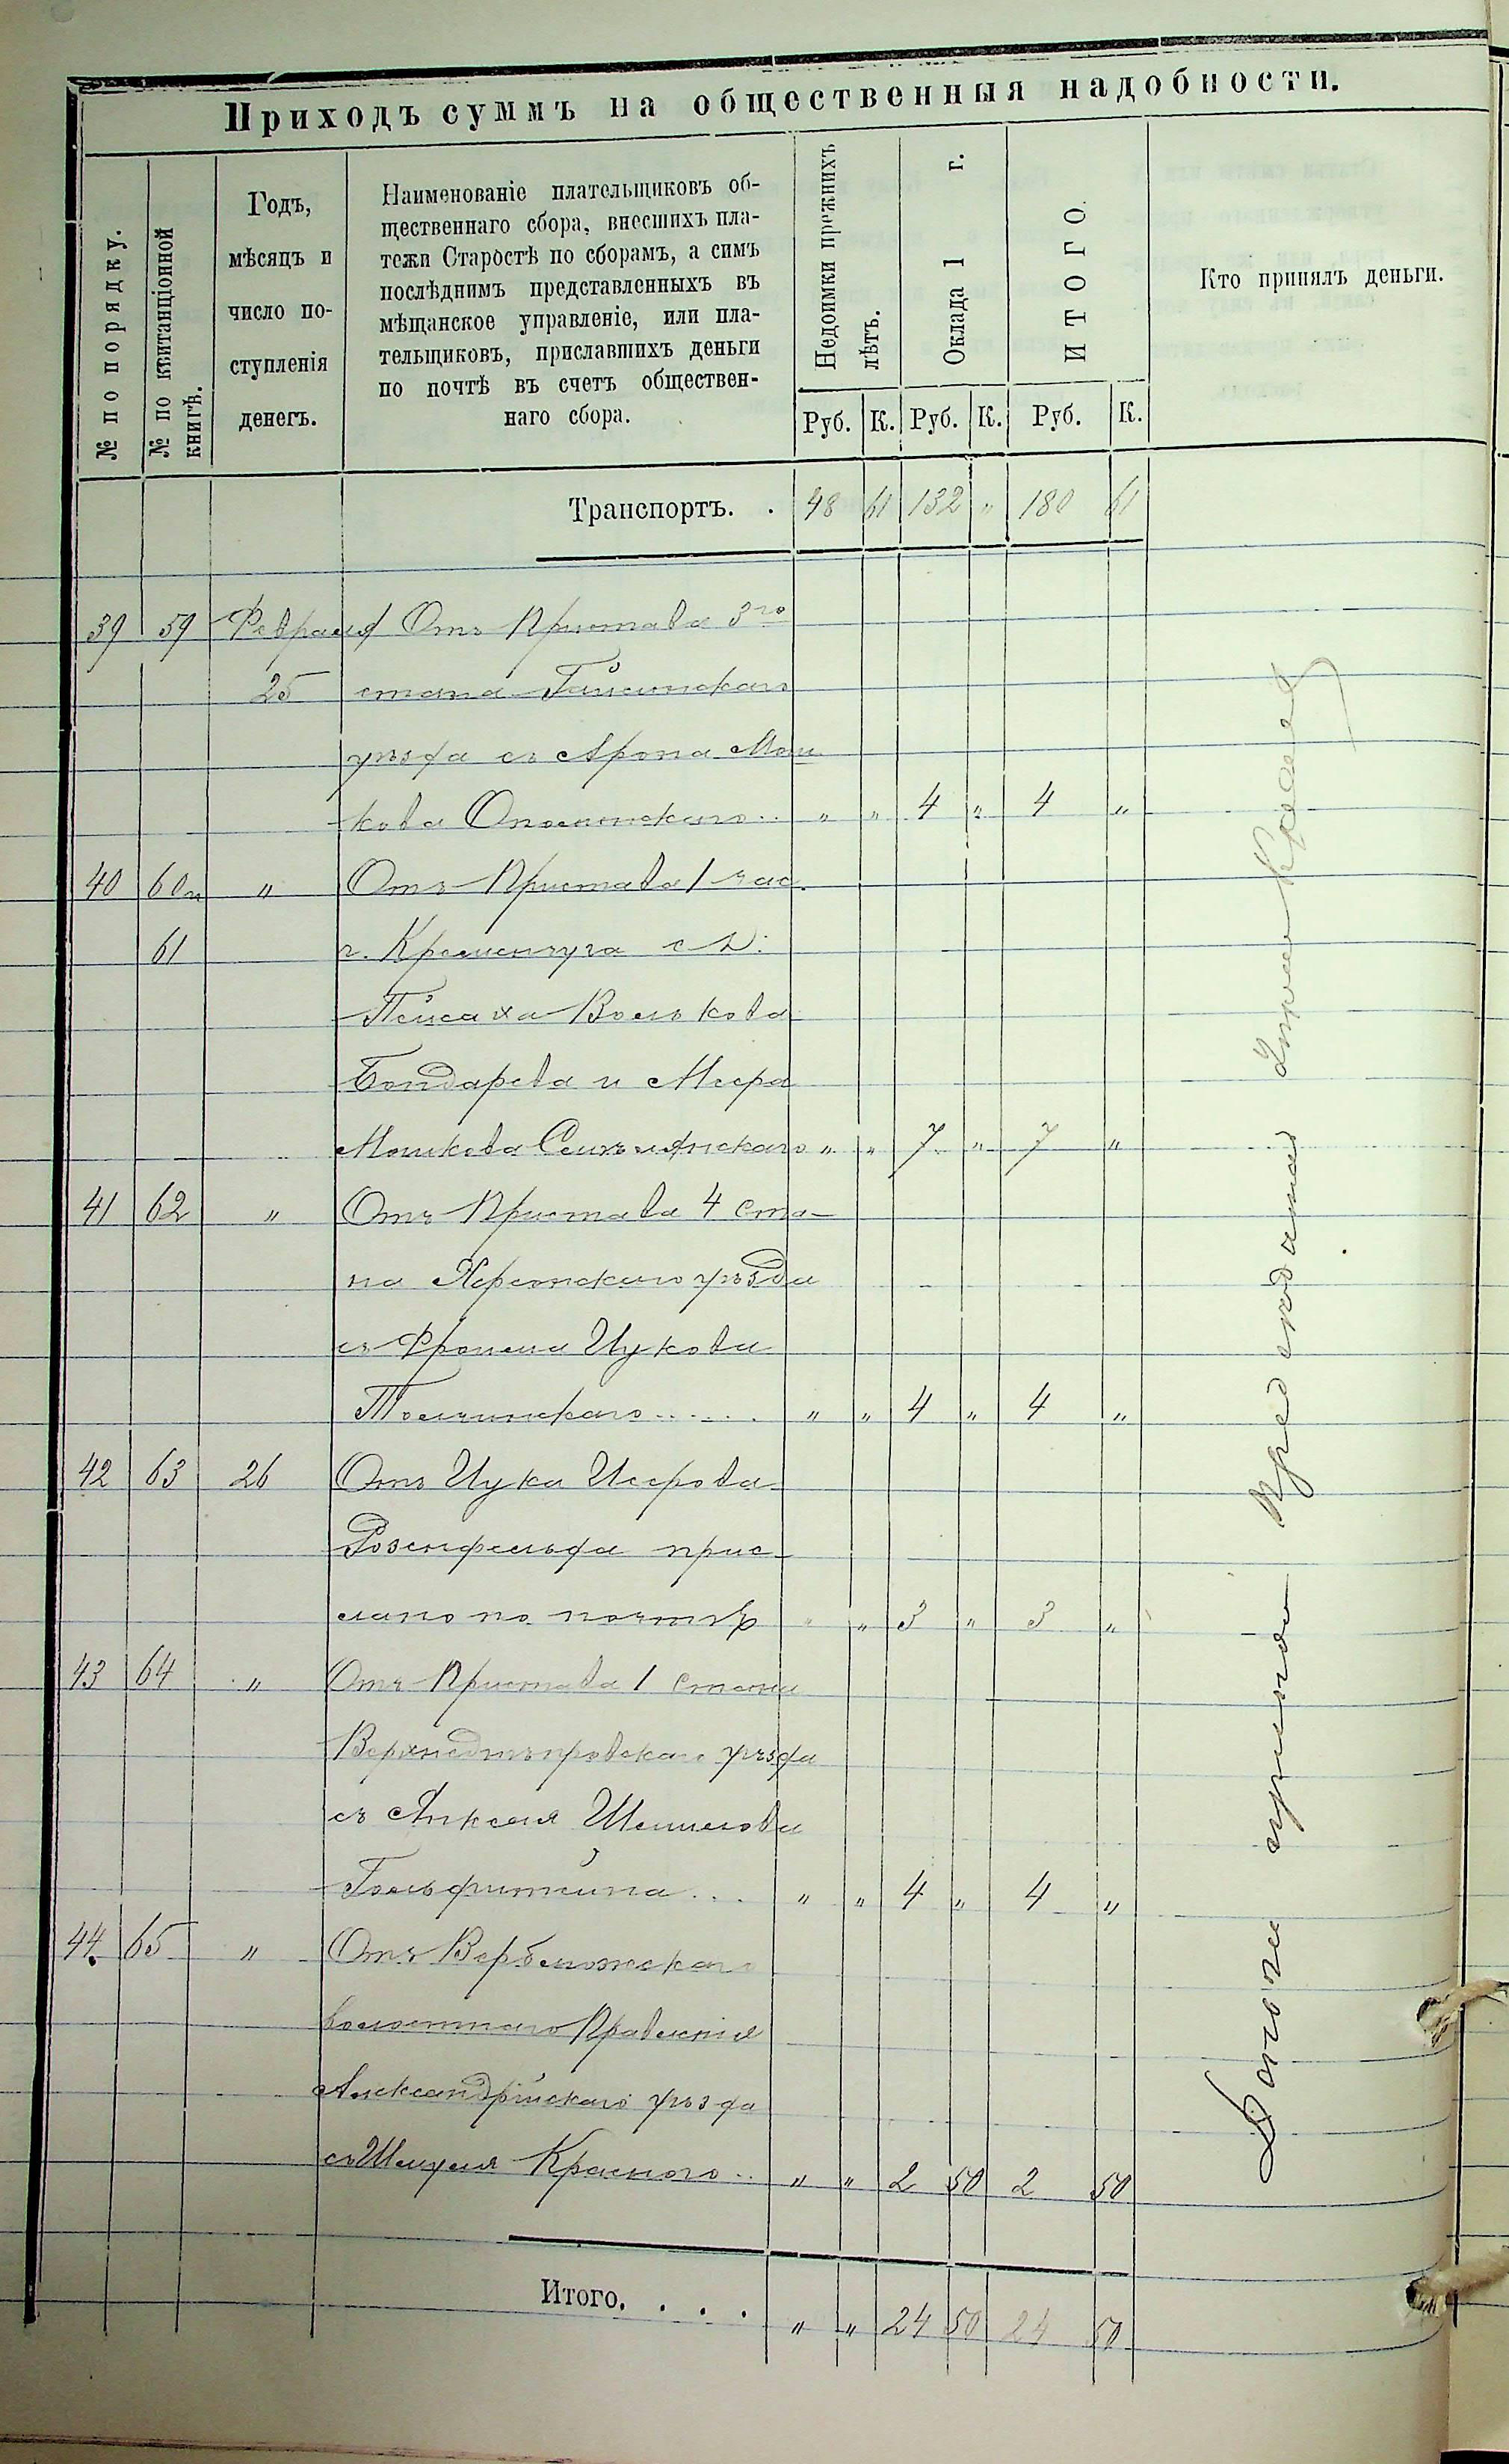 Приходъ суммъ на общественныя надобности.
№ по порядку.
№ по квитанціонной
книгѣ.
Годъ,
мѣсяцъ и
число по-
ступленія
денегъ.
Наименованіе плательщиковъ об-
щественнаго сбора, внесшихъ пла-
тежи Старостѣ по сборамъ, а симъ
послѣднимъ представленныхъ въ
мѣщанское управленіе, или пла-
тельщиковъ, приславшихъ деньги
по почтѣ въ счетъ обществен-
наго сбора.
Недоимки прежнихъ
лѣтъ.
Оклада 1 г.
ИТОГО.
Кто принялъ деньги.
Руб. К. Руб. К. Руб. К.
Транспортъ. . 48 61 132 " 180 61
39 59 Февраля Отъ Пристава 3го
25 стана Гайсинскаго
уѣзда съ Арона Мош
кова Ополинскаго.. " " 4 " 4 "
40 60и " Отъ Пристава 1 час.
61 г. Кременчуга съ
Пейсаха Волькова
Бондарева и Меера
Мошкова " " 7 " 7 "
41 62 " Отъ Пристава 4 ста-
на Херсонскаго уѣзда
съ Фроима Ицкова
Толчинскаго...... " " 4 " 4 "
42 63 26 Отъ Ицка Исерова
Розенфельда прис-
лано по почтѣ " " 3 " 3 "
43 64 " Отъ Пристава 1 стана
Верхнеднѣпровскаго уѣзда
съ Анкеля Шмилова
Гольфштейна... " " 4 " 4 "
44. 65 " Отъ Верблюжскаго
волостнаго Правленія
Александрійскаго уѣзда
съ Шмуля Краснаго.. " " 2 50 2 50
Итого. . . . " " 24 50 24 50
Деньги принялъ